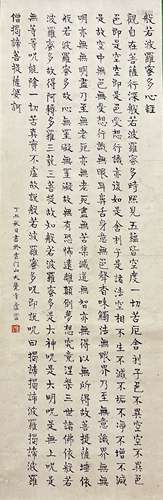 般若波羅蜜多心經
觀自在菩薩行深般若波羅蜜多時照見五蘊皆空度一切苦厄舍利子色不異空空不異色
色即是空空即是色受想行識亦復如是舍利子是諸法空相不生不滅不垢不淨不增不減
是故空中無色無受想行識無眼耳鼻舌身意無色聲香味觸法無眼界乃至無意識界無無
明亦無無明盡乃至無老死亦無老死盡無苦集滅道無智亦無得以無所得故菩提薩埵依
般若波羅蜜多故心無罣礙無罣礙故無有恐怖遠離顛倒夢想究竟涅槃三世諸佛依般若
波羅蜜多故得阿耨多羅三藐三菩提故知般若波羅蜜多是大神咒是大明咒是無上咒是
無等等咒能除一切苦真實不虛故說般若波羅蜜多咒即說咒曰揭諦揭諦波羅揭諦波羅
僧揭諦菩提薩婆訶